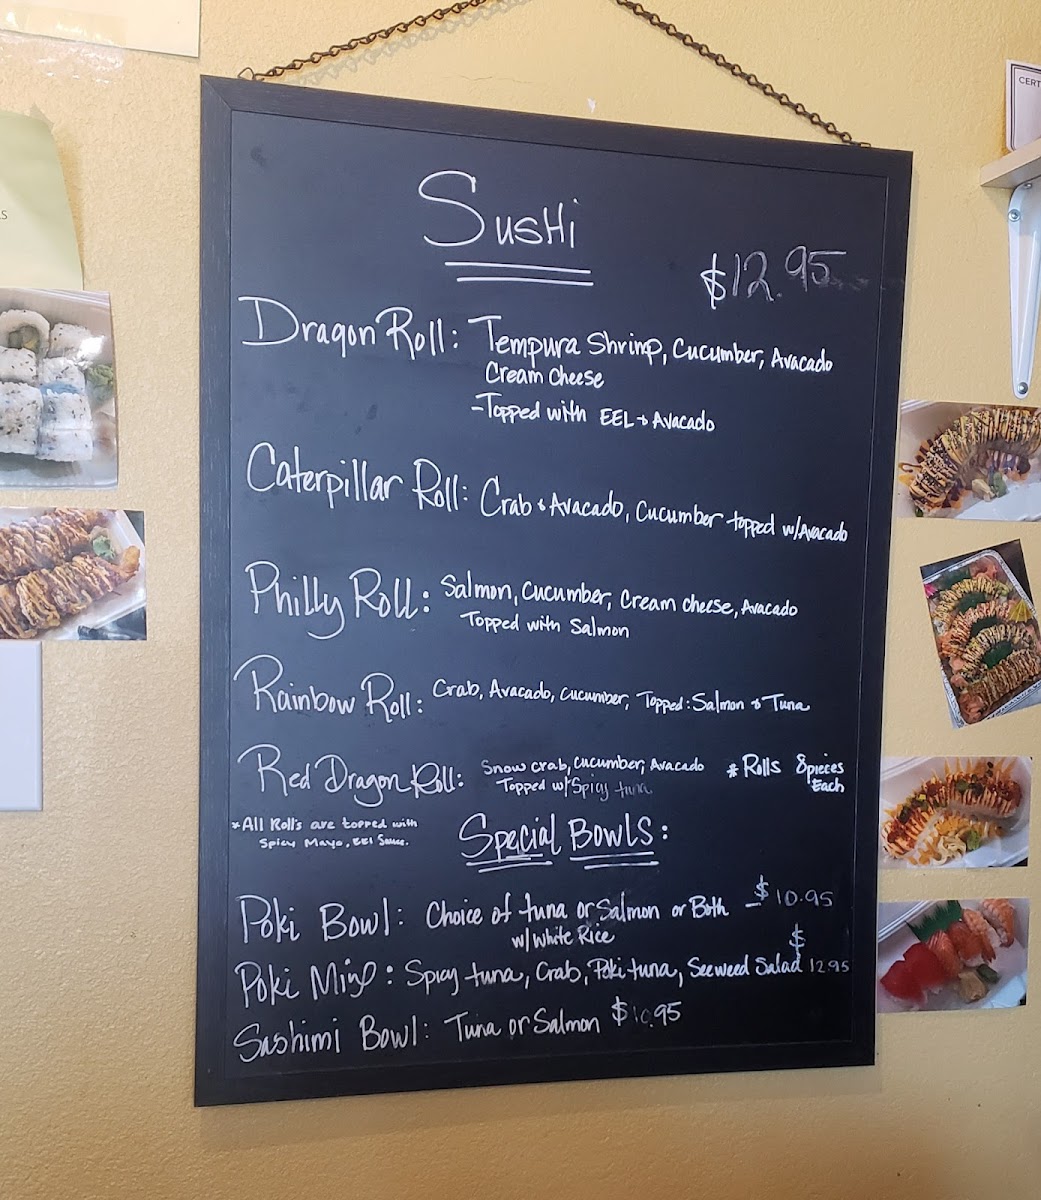 CERT
S
Sushi
$12.95
Dragon Roll: Tempura Shrimp, Cucumber, Avacado
Cream Cheese
-Topped with EEL & Avacado
Caterpillar Roll: Crab & Avacado, Cucumber topped w/Avacado
Philly Roll: Salmon, Cucumber, Cream cheese, Avacado
Topped with Salmon
Rainbow Roll: Crab, Avacado, Cucumber, Topped: Salmon & Tuna
Red Dragon Roll: Snow crab, Cucumber, Avacado * Rolls 8 pieces
Topped w/ Spicy tuna Each
*All Roll's are topped with
Spicy Mayo, EEl Sauce.
Special Bowls:
Poki Bowl: Choice of tuna or Salmon or Both - $10.95
w/White Rice
Poki Mix: Spicy tuna, Crab, Poki tuna, Seeweed Salad $12.95
Sashimi Bowl: Tuna or Salmon $10.95